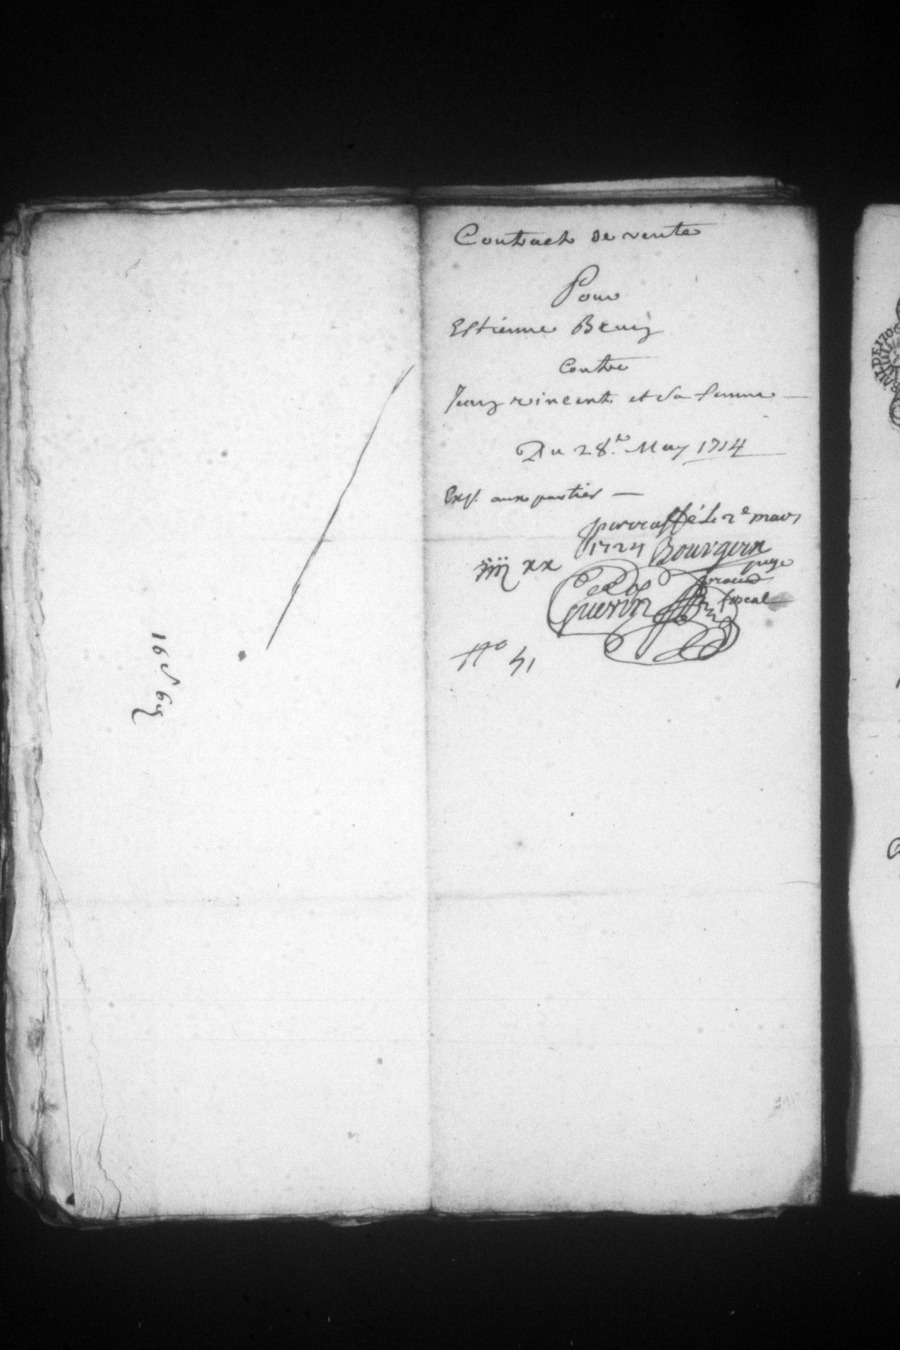 Contract de vente
Pour
Estienne
Contre
vincent et sa femme
Du 28.e May 1714
Exp. aux parties
parraffé le 2e mars
1724 Bourgoin
juge
iiij xx
Guerin
procu
fiscal
No 41